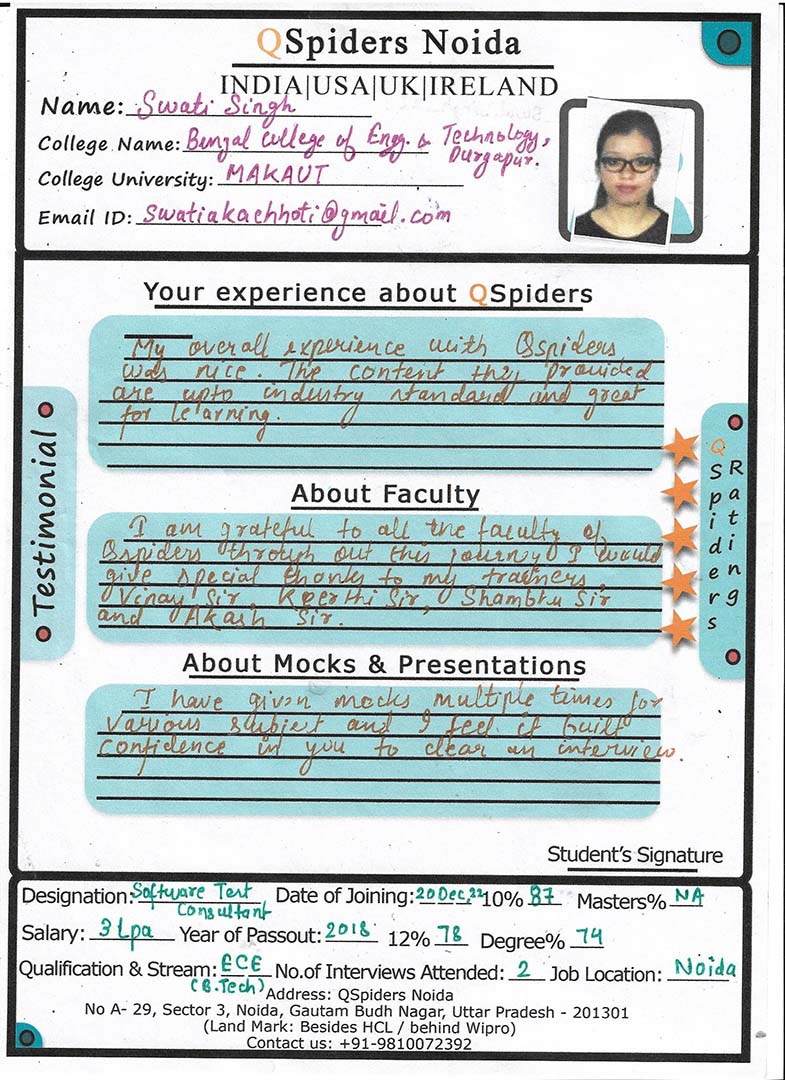 QSpiders Noida
INDIA|USA|UK|IRELAND
Name: Swati Singh
College Name: Bengal College of Engg. & Technology, Durgapur.
College University: MAKAUT
Email ID: swatiakachhoti@gmail.com
Your experience about QSpiders
My overall experience with Qspiders
was nice. The content they provided
are upto industry standard and great
for learning.
About Faculty
I am grateful to all the faculty of
Qspiders through out this journey I would
give special thanks to my trainers,
Vinay Sir, Keerthi Sir, Shambhu Sir
and Akash Sir.
About Mocks & Presentations
I have given mocks multiple times for
various subject and I feel it built
confidence in you to clear an interview.
Testimonial
QSpiders
Rating
Student's Signature
Designation: Software Test Consultant Date of Joining: 20 Dec, 22 10% 87 Masters% NA
Salary: 3 Lpa Year of Passout: 2018 12% 78 Degree% 74
Qualification & Stream: ECE (B.Tech) No.of Interviews Attended: 2 Job Location: Noida
Address: QSpiders Noida
No A- 29, Sector 3, Noida, Gautam Budh Nagar, Uttar Pradesh - 201301
(Land Mark: Besides HCL / behind Wipro)
Contact us: +91-9810072392